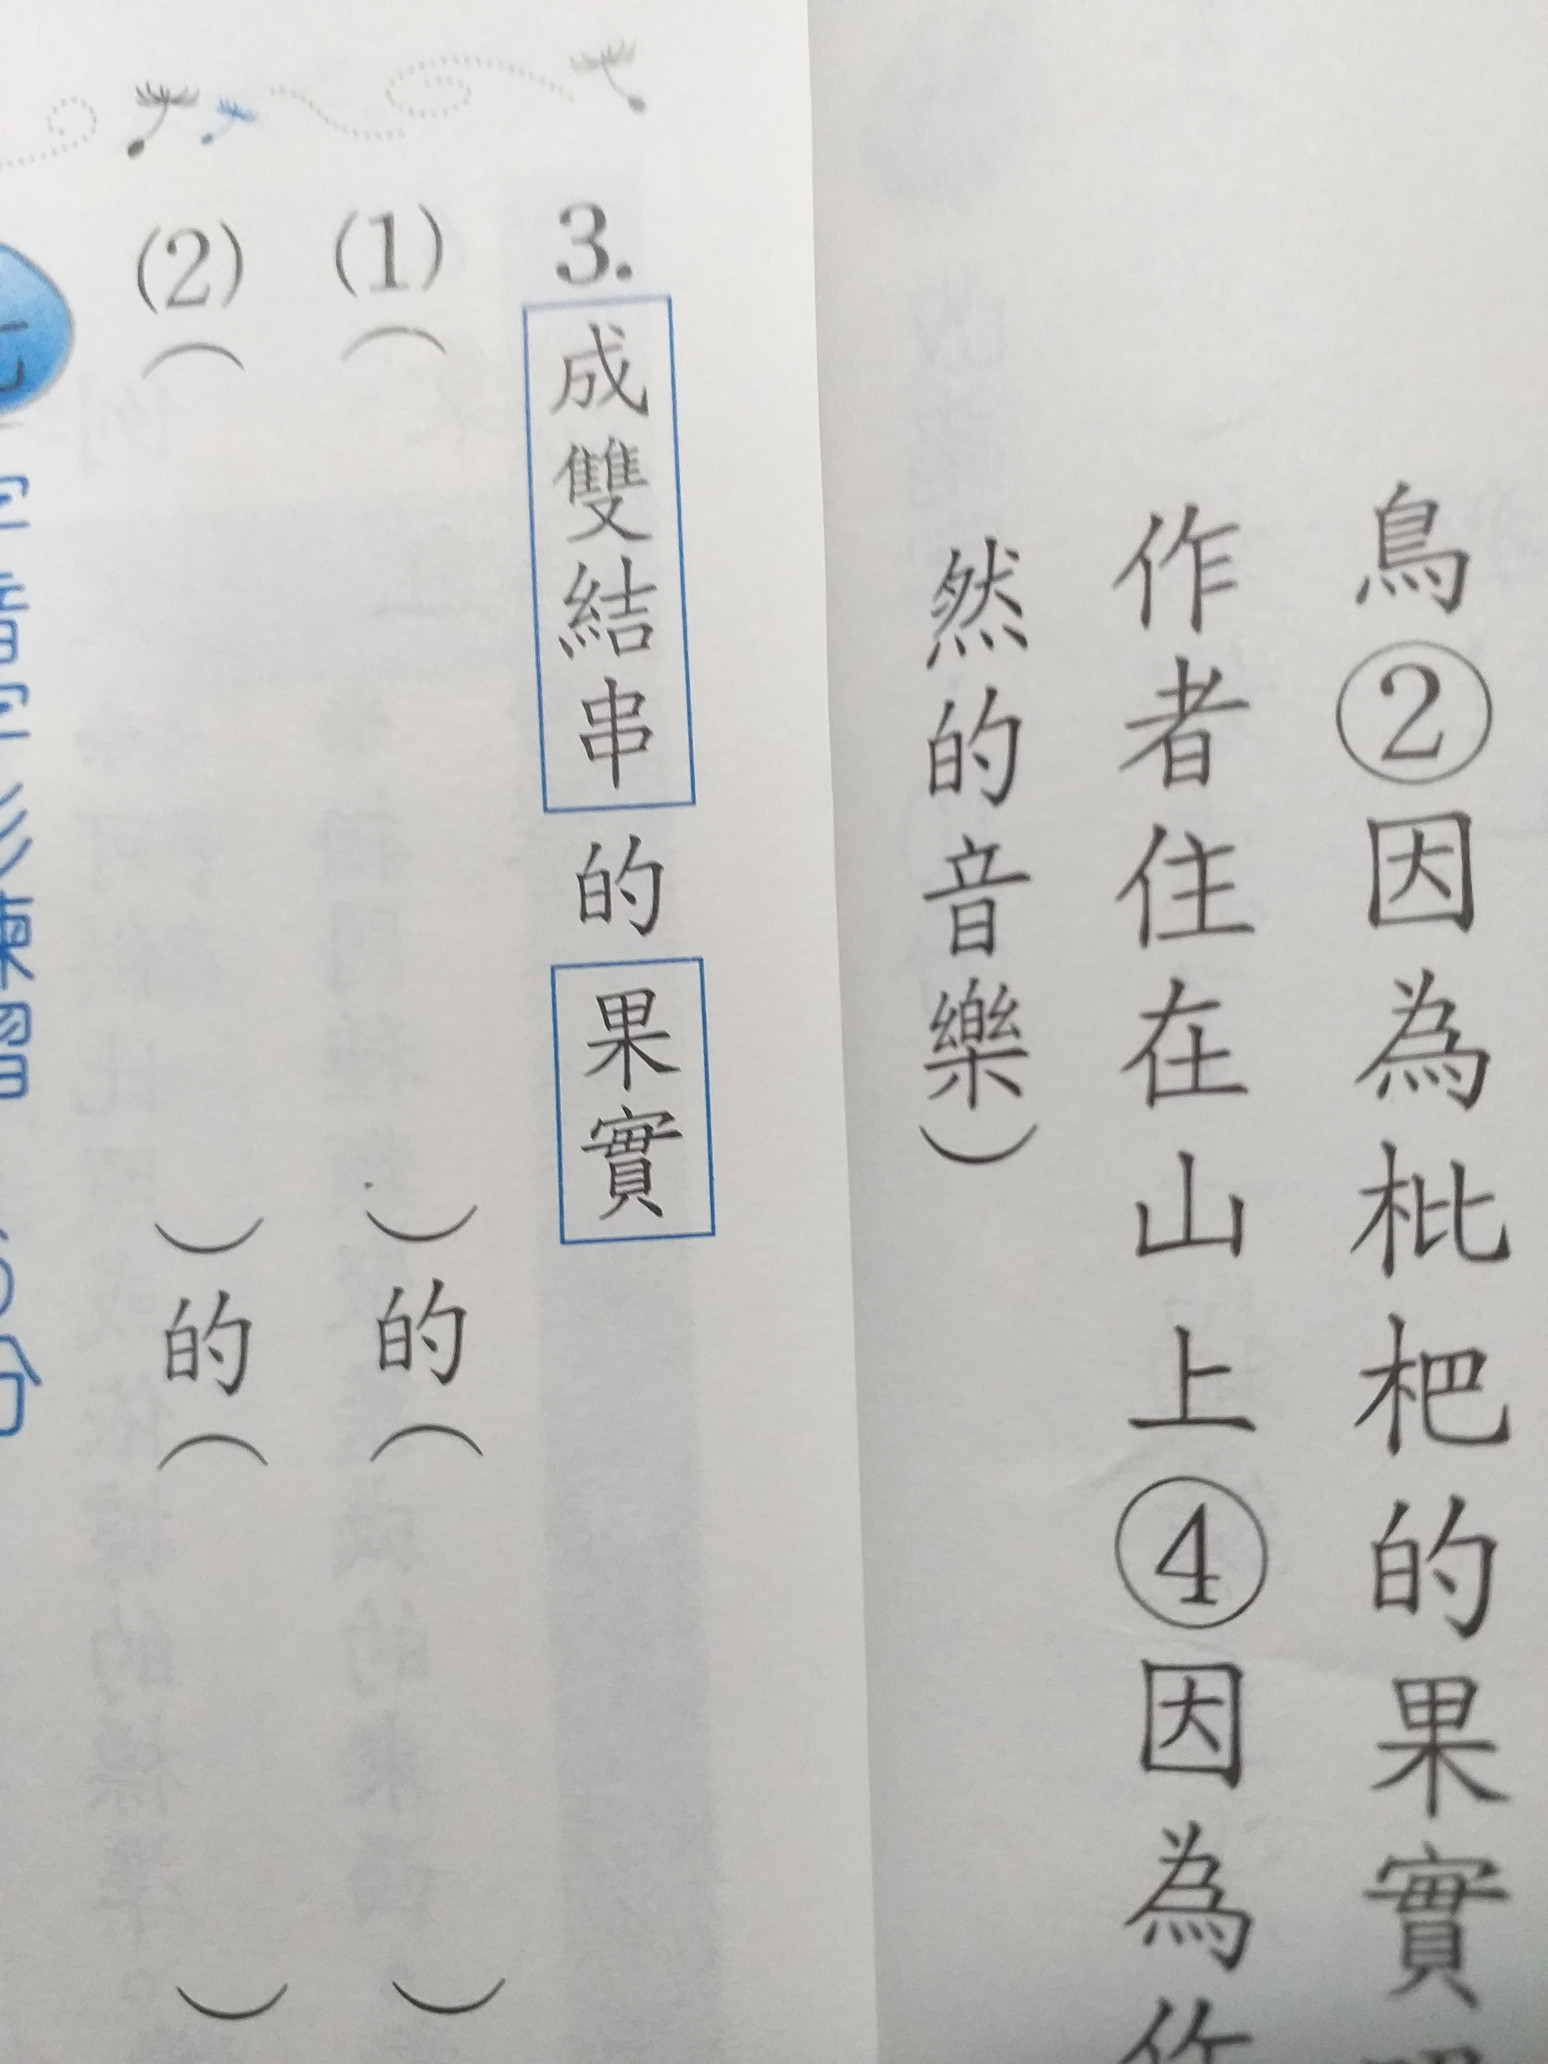 鳥②因為枇杷的果實
作者住在山上④因為作
然的音樂）
3.成雙結串的果實
(1)（　）的（　）
(2)（　）的（　）